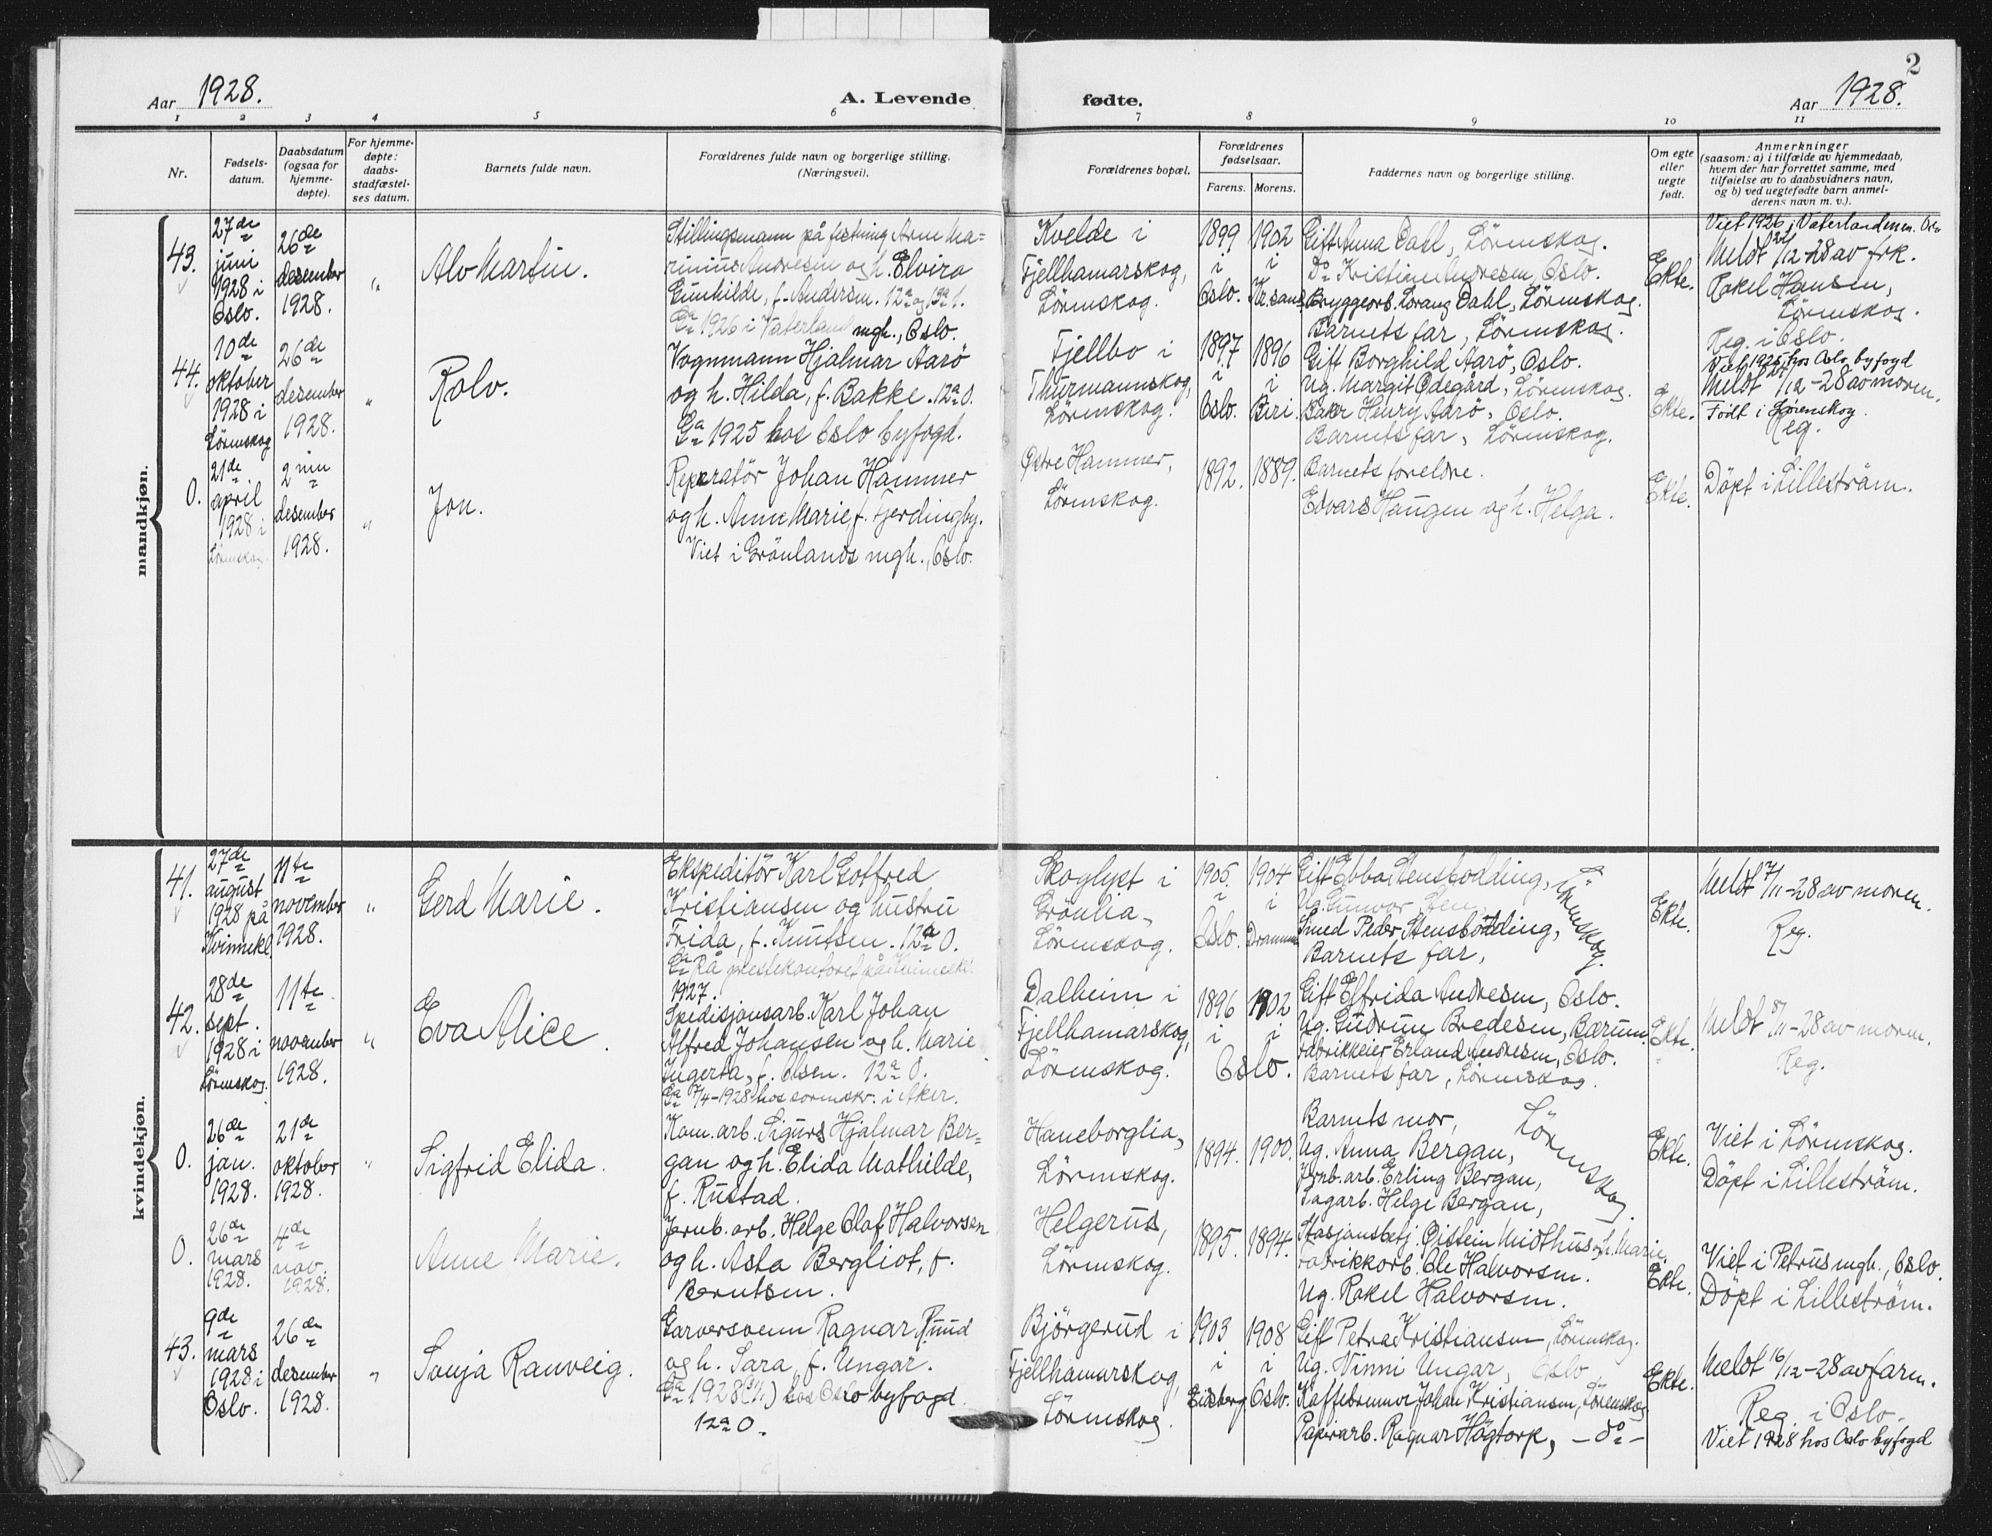 2
Aar 1928.
A. Levende fødte.
Aar 1928.
1 2 3 4 5 6 7 8 9 10 11
Nr.
Fødsels-
datum.
Daabsdatum
(ogsaa for
hjemme-
døpte).
For hjemme-
døpte:
daabs-
stadfæstel-
ses datum.
Barnets fulde navn.
Forældrenes fulde navn og borgerlige stilling.
(Næringsvei).
Forældrenes bopæl.
Forældrenes
fødselsaar.
Farens.
Morens.
Faddernes navn og borgerlige stilling.
Om egte
eller
uegte
født.
Anmerkninger
(saasom: a) i tilfælde av hjemmedaab,
hvem der har forrettet samme, med
tilføielse av to daabsvidners navn,
og b) ved uegtefødte barn anmel-
derens navn m. v.).
mandkjøn.
43.
27de
juni
1928 i
Oslo.
26de
desember
1928.
"
Alv Martin.
Stillingsmann på festning Arne Ma-
rinius Andresen og h. Elvira
Gunhilde, f. Andersen. 12a og 13a 1.
Ga 1926 i Vaterland mgh., Oslo.
Kvelde i
Fjellhamarskog,
Lörenskog.
1899
i
Oslo.
1902
i
Kr.sand.
Gift Anna Dahl, Lörenskog.
Do Kristian Andresen, Oslo.
Bryggearb. Lorang Dahl, Lörenskog.
Barnets far, Lörenskog.
Ekte.
Viet 1926 i Vaterland men. Oslo
Meldt 22/12-28 av frk.
Rakel Hansen,
Lörenskog.
Reg. i Oslo.
44.
10de
oktober
1928 i
Lörenskog
26de
desember
1928.
"
Rolv.
Vognmann Hjalmar Aarö
og h. Hilda, f. Bakke. 12a 0.
Ga 1925 hos Oslo byfogd.
Fjellbo i
Thurmannskog,
Lörenskog.
1897
i
Oslo.
1896
i
Biri.
Gift Borghild Aarö, Oslo.
Ug. Margit Ödegård, Lörenskog.
Baker Henry Aarö, Oslo.
Barnets far, Lörenskog.
Ekte.
Viet 1925 hos Oslo byfogd
Meldt 22/12-28 av moren.
Født i Lørenskog.
Reg.
0.
21de
april
1928 i
Lörenskog.
2nen
desember
1928.
"
Jon.
Reparatör Johan Hammer
og h. Anne Marie f. Fjerdingby.
Viet i Grönlands mgh., Oslo.
Østre Hammer,
Lörenskog.
1892.
1889.
Barnets foreldre.
Edvard Haugen og h. Helga.
Ekte.
Döpt i Lilleström.
kvindekjøn.
41.
27de
august
1928 på
Kvinnekl.
11te
november
1928.
"
Gerd Marie.
Ekspeditör Karl Gotfred
Kristiansen og hustru
Frida, f. Knutsen. 12a 0.
Ga På prestekontoret på
1927.
Skoglyst i
Grönlia,
Lörenskog.
1905
i
Oslo.
1904
i
Drammen
Gift Ebba Stensbødding,
Ug. Gunvor
Smed Peder Stensbødding,
Barnets far,
Lörenskog.
Ekte.
Meldt 7/11-28 av moren.
Reg.
42.
28de
sept.
1928 i
Lörenskog.
11te
november
1928.
"
Eva Alice.
Spedisjonsarb. Karl Johan
Alfred Johansen og h. Marie
Ingerta, f. Olsen. 12a 0.
Ga 17/4-1928 hos sorenskr. i Aker.
Dalheim i
Fjellhamarskog,
Lörenskog.
1896
i
1902
i
Oslo.
Gift Elfrida Andresen, Oslo.
Ug. Gudrun Bredesen, Bærum.
Fabrikkeier Erland Andresen, Oslo.
Barnets far, Lörenskog.
Ekte.
Meldt 8/11-28 av moren.
Reg.
0.
26de
jan.
1928.
21de
oktober
1928.
"
Sigfrid Elida.
Kom. arb. Sigurd Hjalmar Ber-
gan og h. Elida Mathilde,
f. Rustad.
Haneborglia,
Lörenskog.
1894.
1900.
Barnets mor,
Ug. Anna Bergan,
Jernb.arb. Erling Bergan,
Sagarb. Helge Bergan,
Lörenskog.
Ekte.
Viet i Lörenskog.
Döpt i Lilleström.
0.
26de
mars
1928.
4de
nov.
1928.
Anne Marie.
Jernb. arb. Helge Olaf Halvorsen
og h. Asta Bergliot, f.
Berntsen.
Helgerud,
Lörenskog.
1895.
1894.
Stasjonsbetj. Øistein Midthus og h. Marie
Fabrikkarb. Ole Halvorsen.
Ug. Rakel Halvorsen.
Ekte.
Viet i Petrus mgh., Oslo.
Döpt i Lilleström.
43.
9de
mars
1928 i
Oslo.
26de
desember
1928.
"
Sonja Ranveig.
Garversvenn Ragnar Ruud
og h. Sara, f. Ungar.
Ga 1928 hos Oslo byfogd.
12a 0.
Björgerud i
Fjellhamarskog,
Lörenskog.
1903
i
Eidsberg
1908
i
Oslo.
Gift Petra Kristiansen, Lörenskog.
Ug. Vinni Ungar, Oslo
Kaffebrenner Johan Kristiansen, Lörenskog
Papirarb. Ragnar Høgtorp, -do-
Ekte.
Meldt 16/12-28 av faren.
Reg. i Oslo.
Viet 1928 hos Oslo byfogd